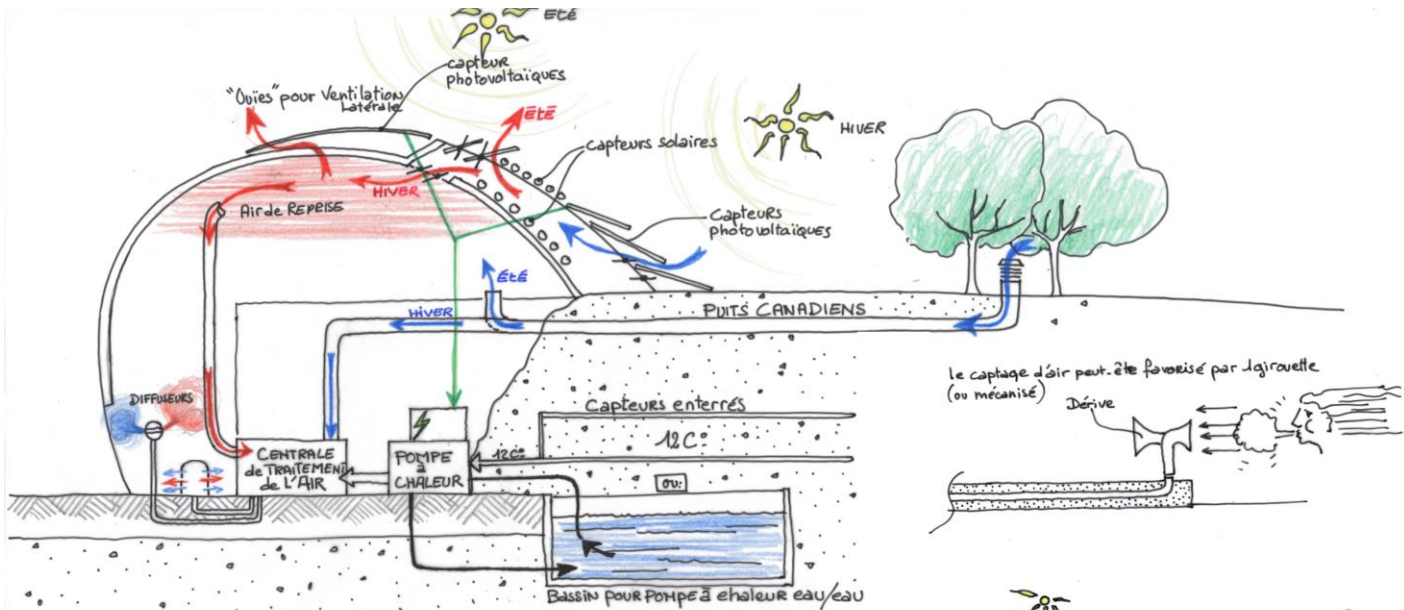 ÉTÉ
capteur
photovoltaïques
"Ouïes" pour Ventilation
Latérale
ÉTÉ
HIVER
Capteurs solaires
HIVER
Air de REPRISE
Capteurs
photovoltaïques
ÉTÉ
HIVER
PUITS CANADIENS
le captage d'air peut-ête favorisé par 1 girouette
(ou mécanisé)
Dérive
DIFFUSEURS
Capteurs enterrés
12C°
12C°
CENTRALE
de TRAITEMENT
de L'AIR
POMPE
à
CHALEUR
ou:
BASSIN POUR POMPE à chaleur eau/eau